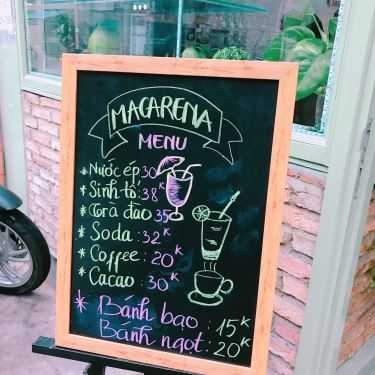 MACARENA
MENU
* Nước ép 30K
* Sinh tố: 38K
* Trà đào 35K
* Soda: 32K
* Coffee: 20K
* Cacao: 30K
* Bánh bao: 15K
Bánh ngọt: 20K